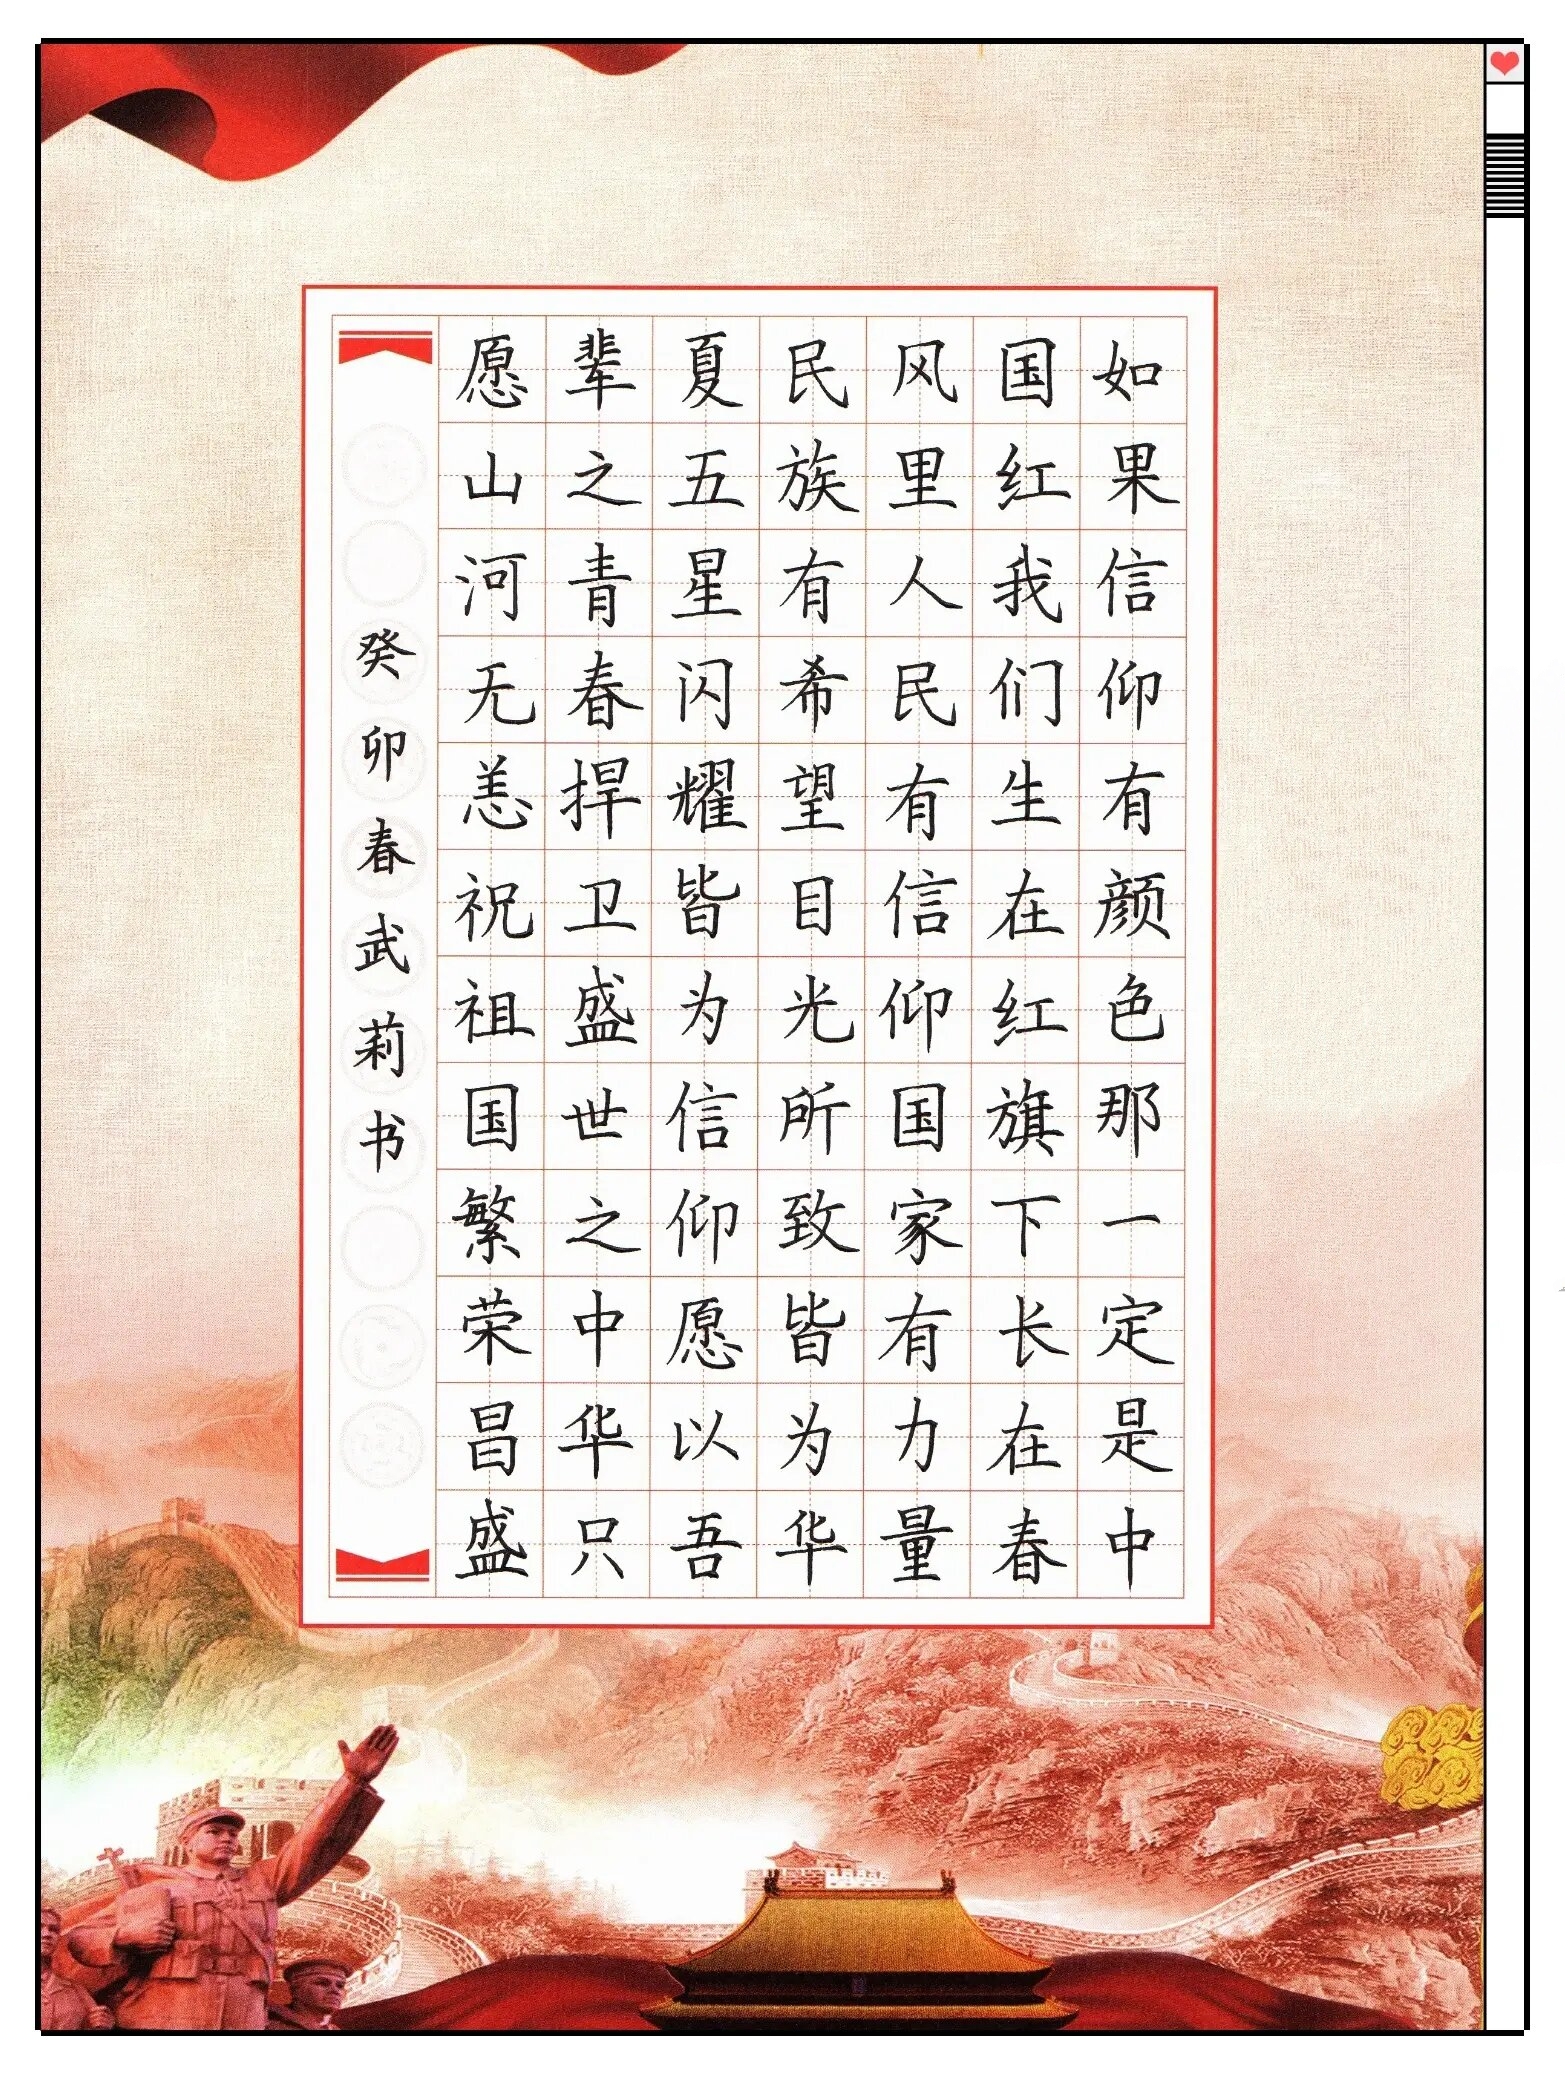 如果信仰有颜色那一定是中
国红我们生在红旗下长在春
风里人民有信仰国家有力量
民族有希望目光所致皆为华
夏五星闪耀皆为信仰愿以吾
辈之青春捍卫盛世之中华只
愿山河无恙祝祖国繁荣昌盛
癸卯春武莉书